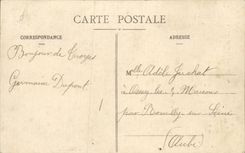 CARTE POSTALE
CORRESPONDANCE
ADRESSE
Bonjour de Troyes
Germaine Dupont
Mlle Adèle Juchat
à les 3 Maisons
par Romilly sur Seine
(Aube)